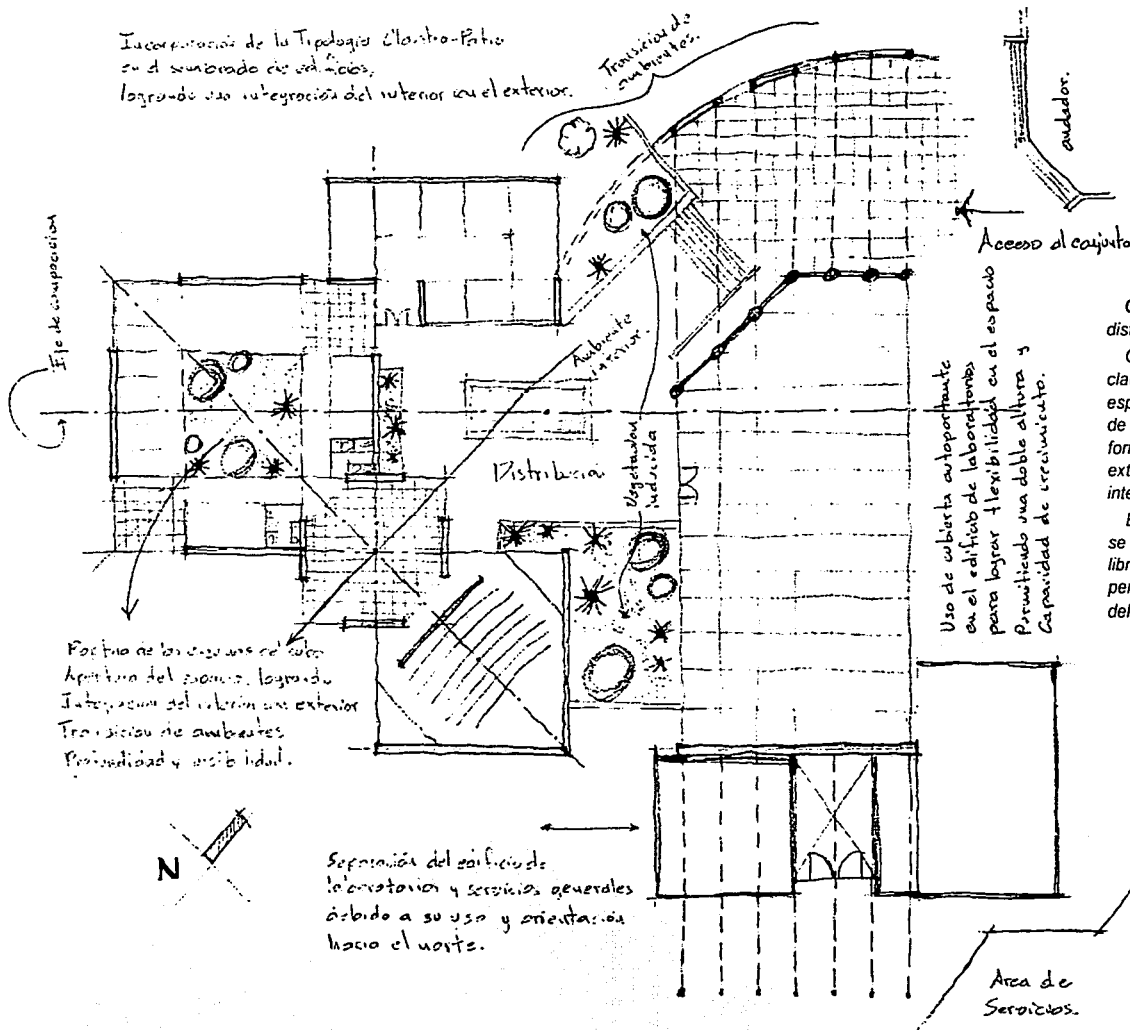 Incorporación de la Tipología Claustro-Patio
en el sembrado de edificios,
logrando una integración del interior con el exterior.
Transición de
ambientes.
andador.
Acceso al conjunto
Eje de composición
Ambiente
interior.
Distribución
Vegetación
inducida
Uso de cubierta autoportante
en el edificio de laboratorios
para lograr flexibilidad en el espacio
Permitiendo una doble altura y
Capacidad de crecimiento.
dist
cla
esp
de
for
ext
inte
se
libr
per
del
de las esquinas del cubo
Apertura del espacio, logrando
Integración del interior con exterior
Transición de ambientes
Profundidad y visibilidad.
N
Separación del edificio de
laboratorios y servicios generales
debido a su uso y orientación
hacia el norte.
Area de
Servicios.